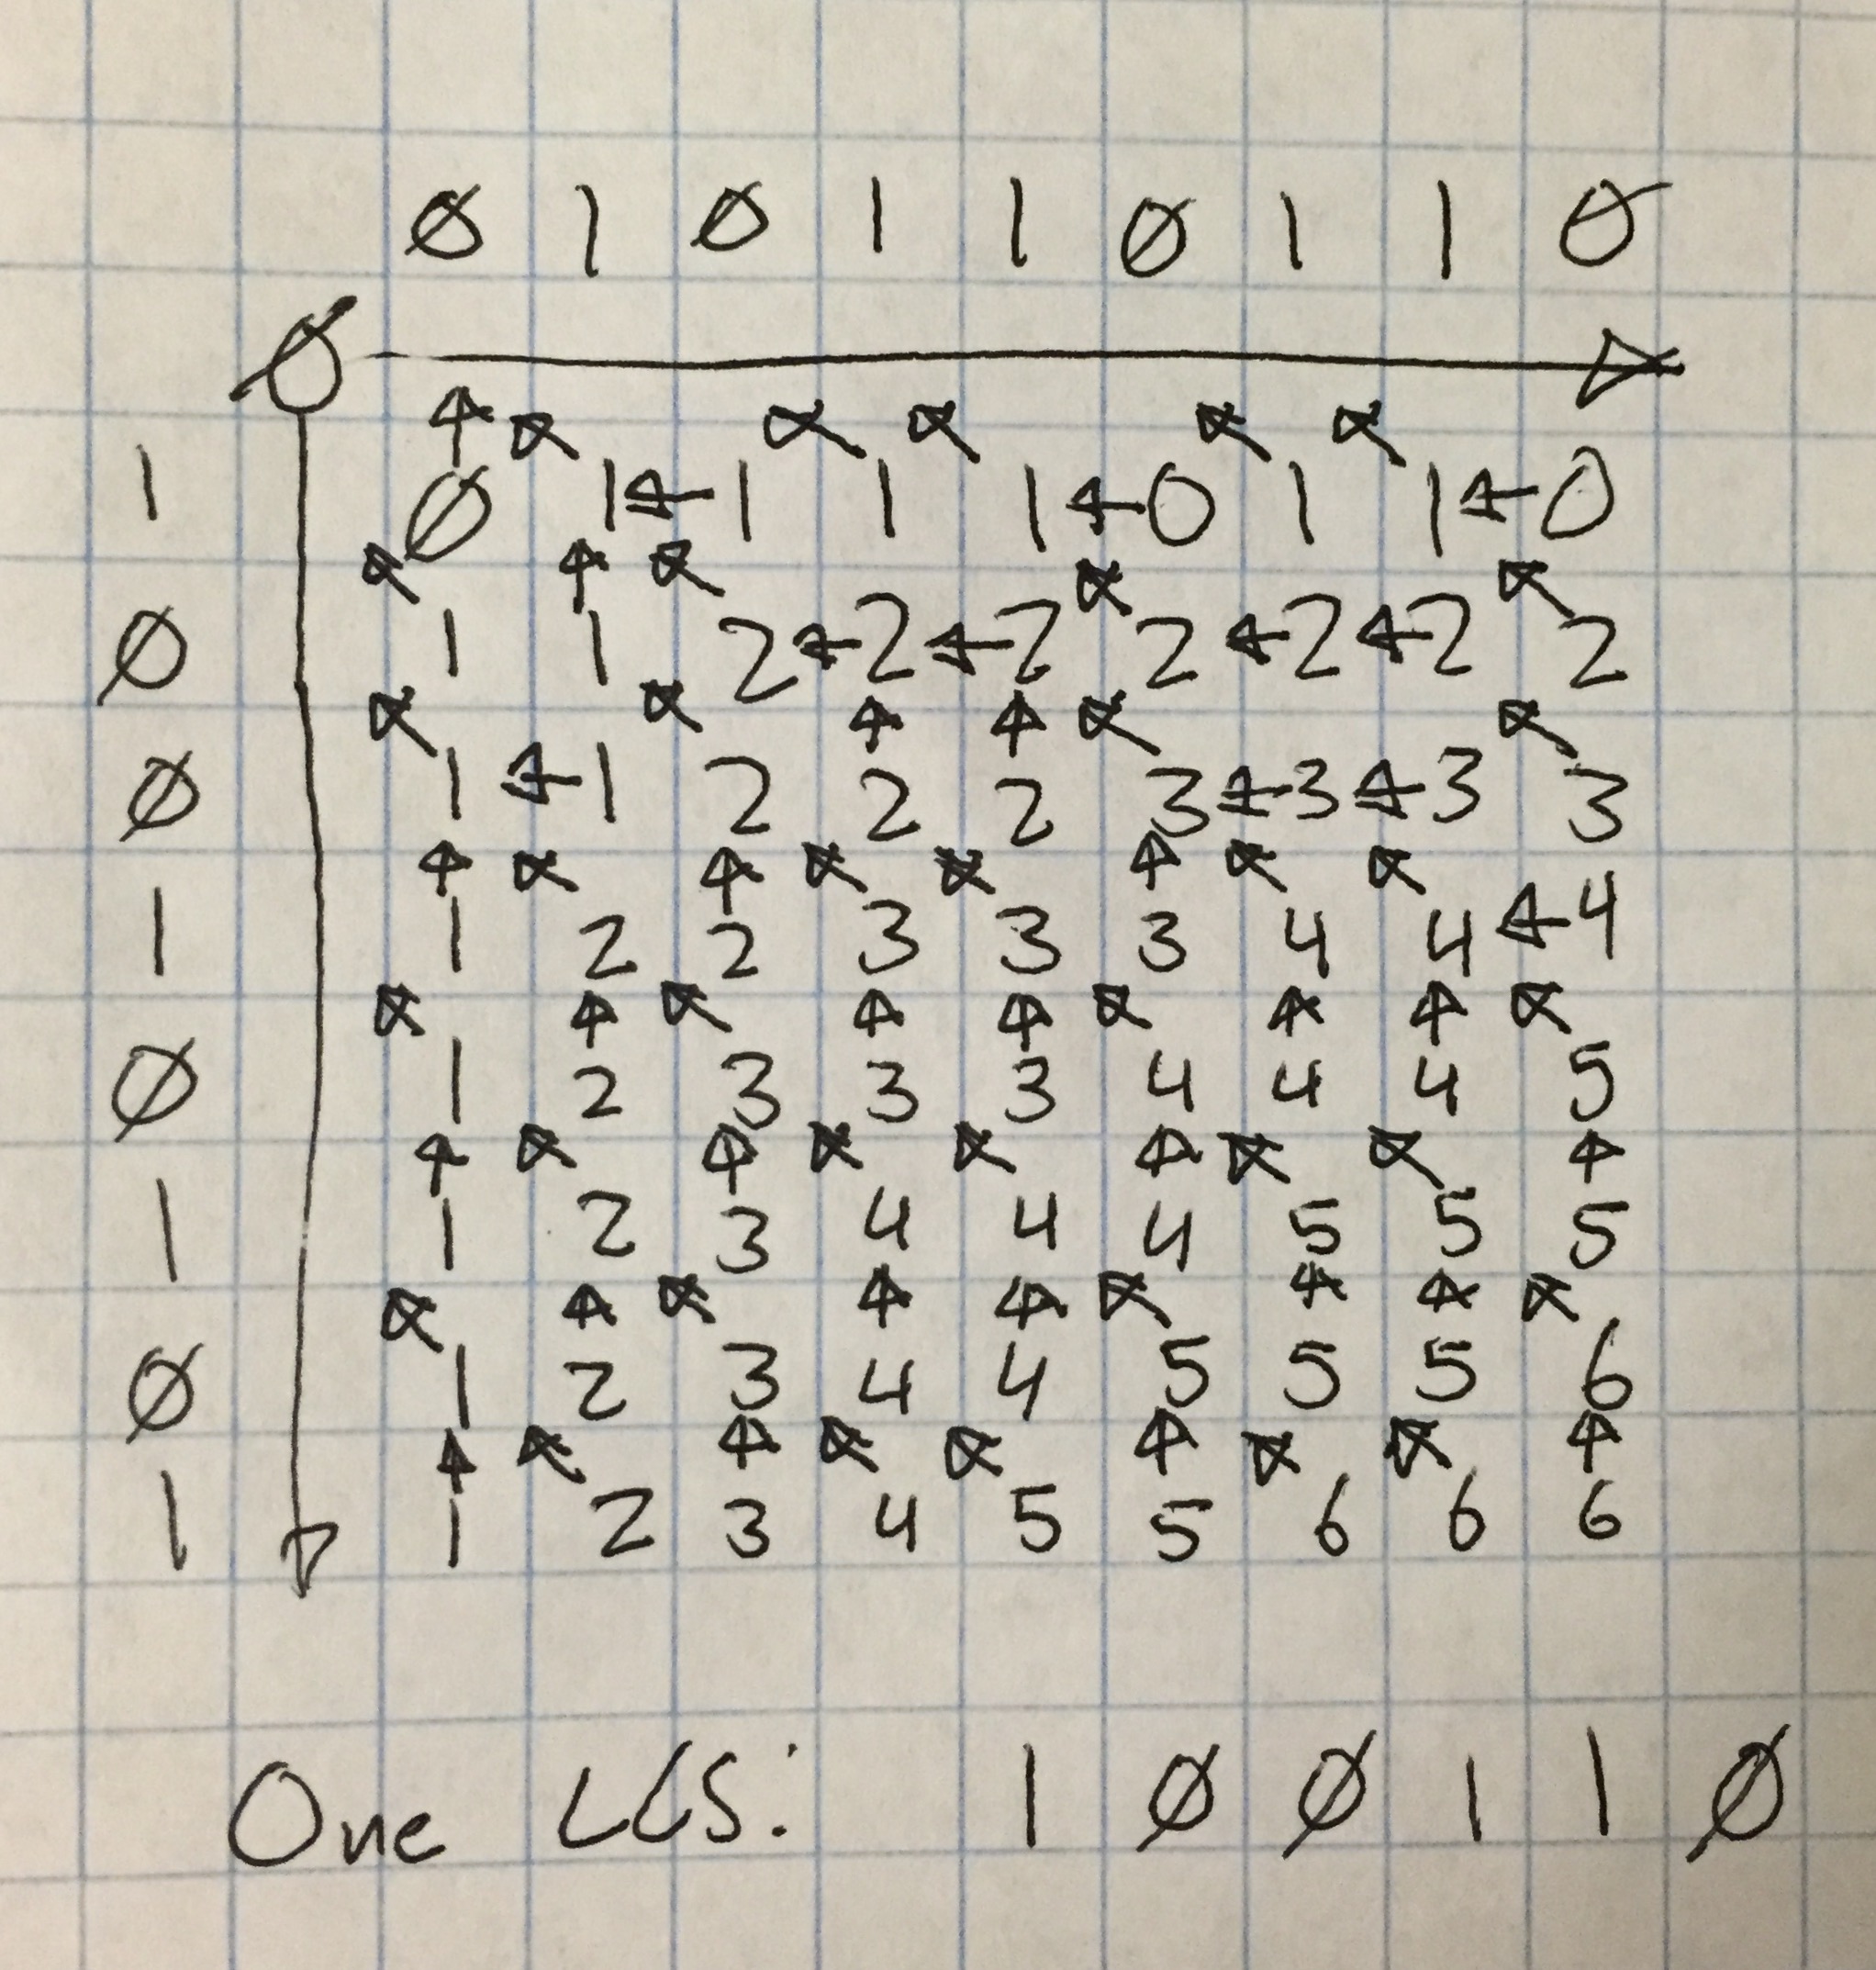 Ø 1 Ø 1 1 Ø 1 1 Ø
Ø
1 Ø 1 ← 1 1 1 ← 0 1 1 ← 0
Ø 1 1 2 ← 2 ← 2 2 ← 2 ← 2 2
Ø 1 ← 1 2 2 2 3 ← 3 ← 3 3
1 1 2 2 3 3 3 4 4 ← 4
Ø 1 2 3 3 3 4 4 4 5
1 1 2 3 4 4 4 5 5 5
Ø 1 2 3 4 4 5 5 5 6
1 1 2 3 4 5 5 6 6 6
One LCS: 1 Ø Ø 1 1 Ø